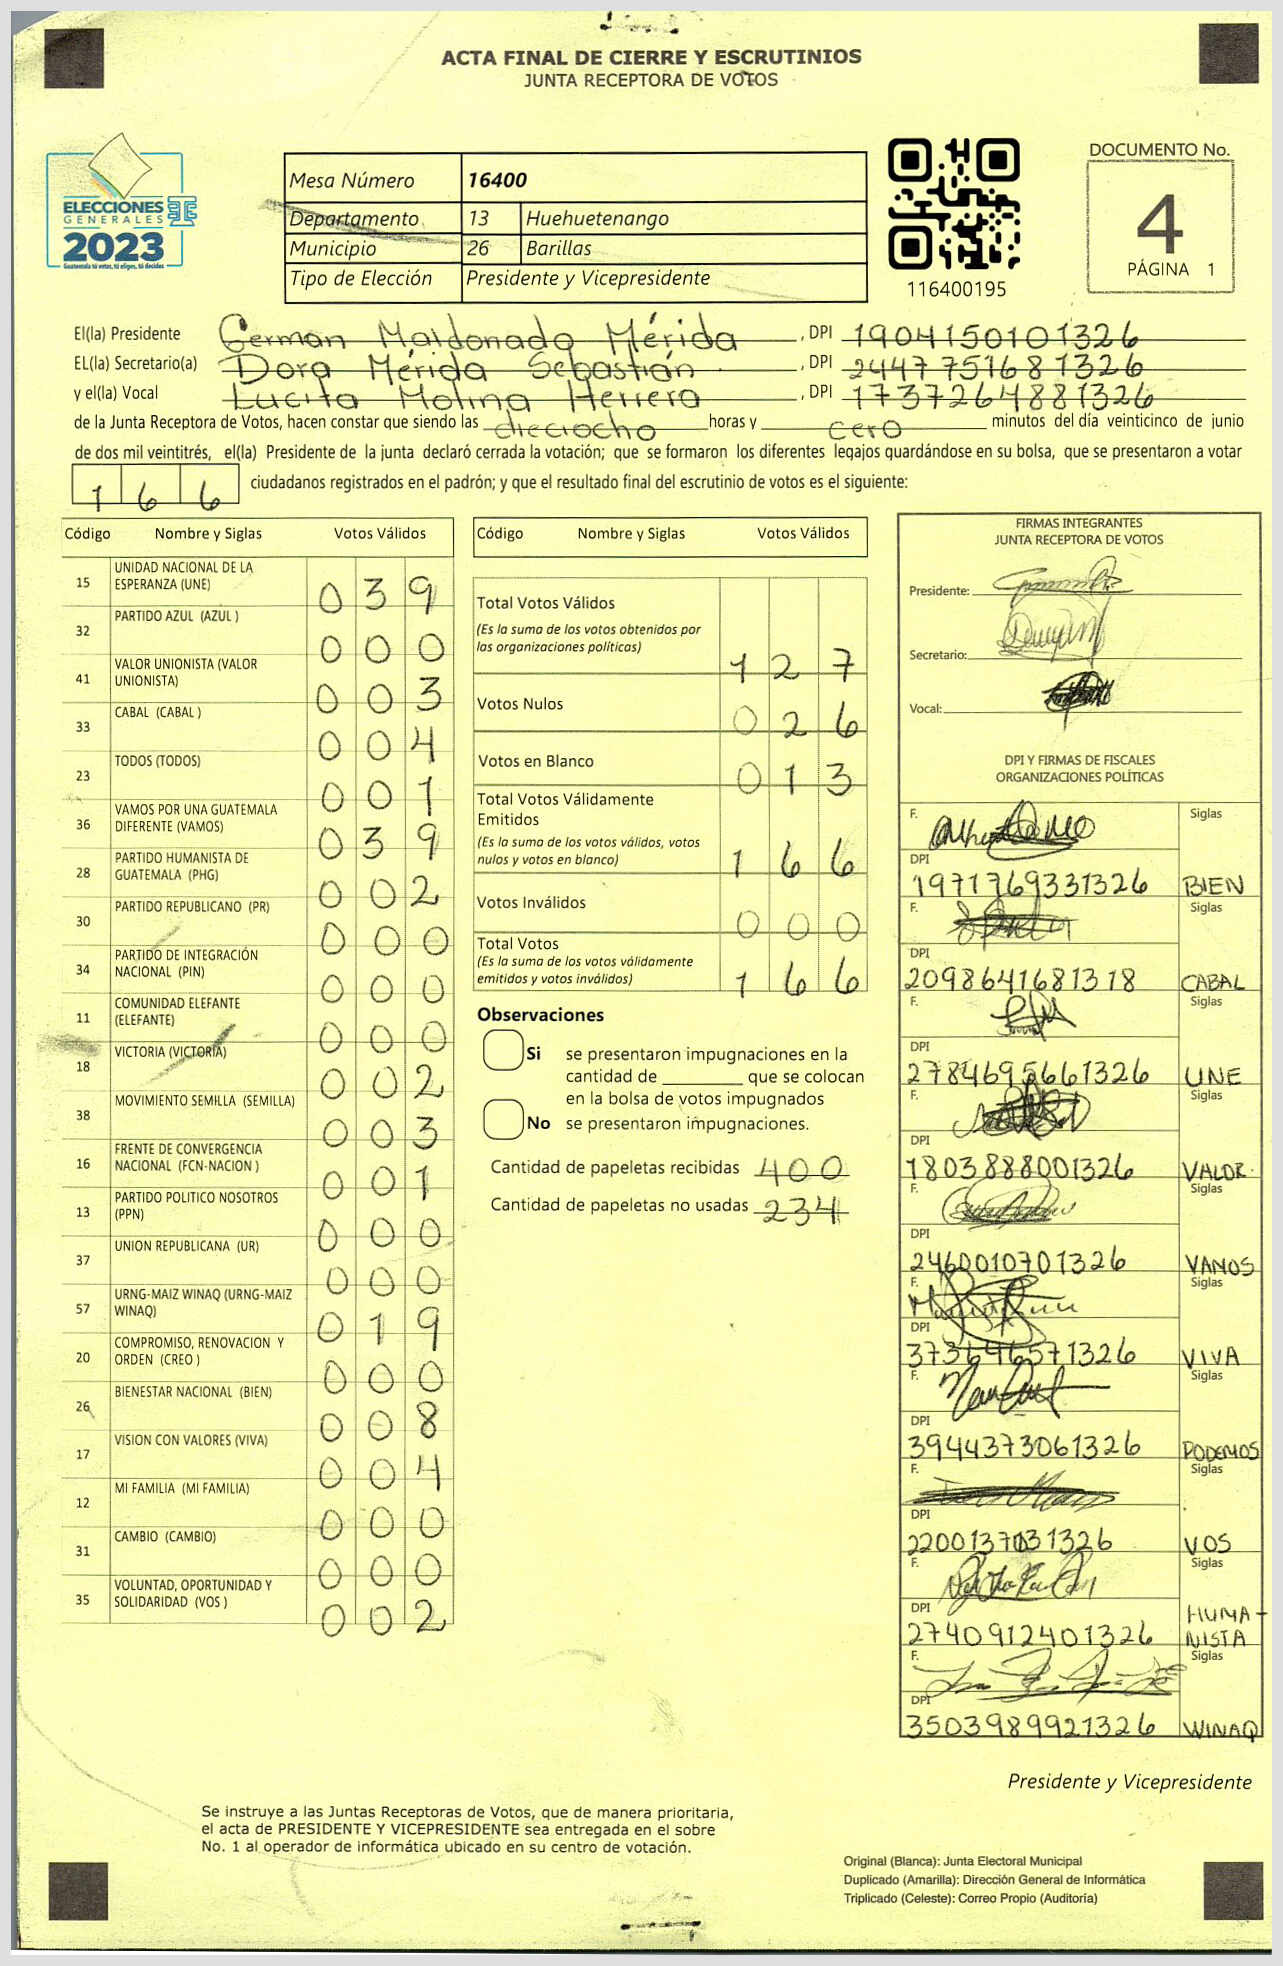 ACTA FINAL DE CIERRE Y ESCRUTINIOS
JUNTA RECEPTORA DE VOTOS
ELECCIONES
GENERALES
2023
Guatemala tú votas, tú eliges, tú decides
Mesa Número 16400
Departamento 13 Huehuetenango
Municipio 26 Barillas
Tipo de Elección Presidente y Vicepresidente
116400195
DOCUMENTO No.
4
PÁGINA 1
El(la) Presidente German Maldonado Mérida, DPI 1904150101326
EL(la) Secretario(a) Dora Mérida Sebastián, DPI 2447751681326
y el(la) Vocal Lucita Molina Herrera, DPI 1737264881326
de la Junta Receptora de Votos, hacen constar que siendo las dieciocho horas y cero minutos del día veinticinco de junio
de dos mil veintitrés, el(la) Presidente de la junta declaró cerrada la votación; que se formaron los diferentes legajos guardándose en su bolsa, que se presentaron a votar
166 ciudadanos registrados en el padrón; y que el resultado final del escrutinio de votos es el siguiente:
Código Nombre y Siglas Votos Válidos
15 UNIDAD NACIONAL DE LA ESPERANZA (UNE) 039
32 PARTIDO AZUL (AZUL ) 000
41 VALOR UNIONISTA (VALOR UNIONISTA) 003
33 CABAL (CABAL ) 004
23 TODOS (TODOS) 001
36 VAMOS POR UNA GUATEMALA DIFERENTE (VAMOS) 039
28 PARTIDO HUMANISTA DE GUATEMALA (PHG) 002
30 PARTIDO REPUBLICANO (PR) 000
34 PARTIDO DE INTEGRACIÓN NACIONAL (PIN) 000
11 COMUNIDAD ELEFANTE (ELEFANTE) 000
18 VICTORIA (VICTORIA) 002
38 MOVIMIENTO SEMILLA (SEMILLA) 003
16 FRENTE DE CONVERGENCIA NACIONAL (FCN-NACION ) 001
13 PARTIDO POLITICO NOSOTROS (PPN) 000
37 UNION REPUBLICANA (UR) 000
57 URNG-MAIZ WINAQ (URNG-MAIZ WINAQ) 019
20 COMPROMISO, RENOVACION Y ORDEN (CREO ) 000
26 BIENESTAR NACIONAL (BIEN) 008
17 VISION CON VALORES (VIVA) 004
12 MI FAMILIA (MI FAMILIA) 000
31 CAMBIO (CAMBIO) 000
35 VOLUNTAD, OPORTUNIDAD Y SOLIDARIDAD (VOS ) 002
Código Nombre y Siglas Votos Válidos
Total Votos Válidos
(Es la suma de los votos obtenidos por
las organizaciones políticas) 127
Votos Nulos 026
Votos en Blanco 013
Total Votos Válidamente
Emitidos
(Es la suma de los votos válidos, votos
nulos y votos en blanco) 166
Votos Inválidos 000
Total Votos
(Es la suma de los votos válidamente
emitidos y votos inválidos) 166
Observaciones
Si se presentaron impugnaciones en la
cantidad de _________ que se colocan
en la bolsa de votos impugnados
No se presentaron impugnaciones.
Cantidad de papeletas recibidas 400
Cantidad de papeletas no usadas 234
FIRMAS INTEGRANTES
JUNTA RECEPTORA DE VOTOS
Presidente:
Secretario:
Vocal:
DPI Y FIRMAS DE FISCALES
ORGANIZACIONES POLÍTICAS
F. Siglas
DPI
1971769331326 BIEN
F. Siglas
DPI
2098641681318 CABAL
F. Siglas
DPI
2784695661326 UNE
F. Siglas
DPI
1803888001326 VALOR
F. Siglas
DPI
2460010701326 VAMOS
F. Siglas
DPI
VIVA
F. Siglas
DPI
3944373061326 PODEMOS
F. Siglas
DPI
VOS
F. Siglas
DPI
2740912401326 HUMA-
NISTA
F. Siglas
DPI
3503989921326 WINAQ
Presidente y Vicepresidente
Se instruye a las Juntas Receptoras de Votos, que de manera prioritaria,
el acta de PRESIDENTE Y VICEPRESIDENTE sea entregada en el sobre
No. 1 al operador de informática ubicado en su centro de votación.
Original (Blanca): Junta Electoral Municipal
Duplicado (Amarilla): Dirección General de Informática
Triplicado (Celeste): Correo Propio (Auditoría)